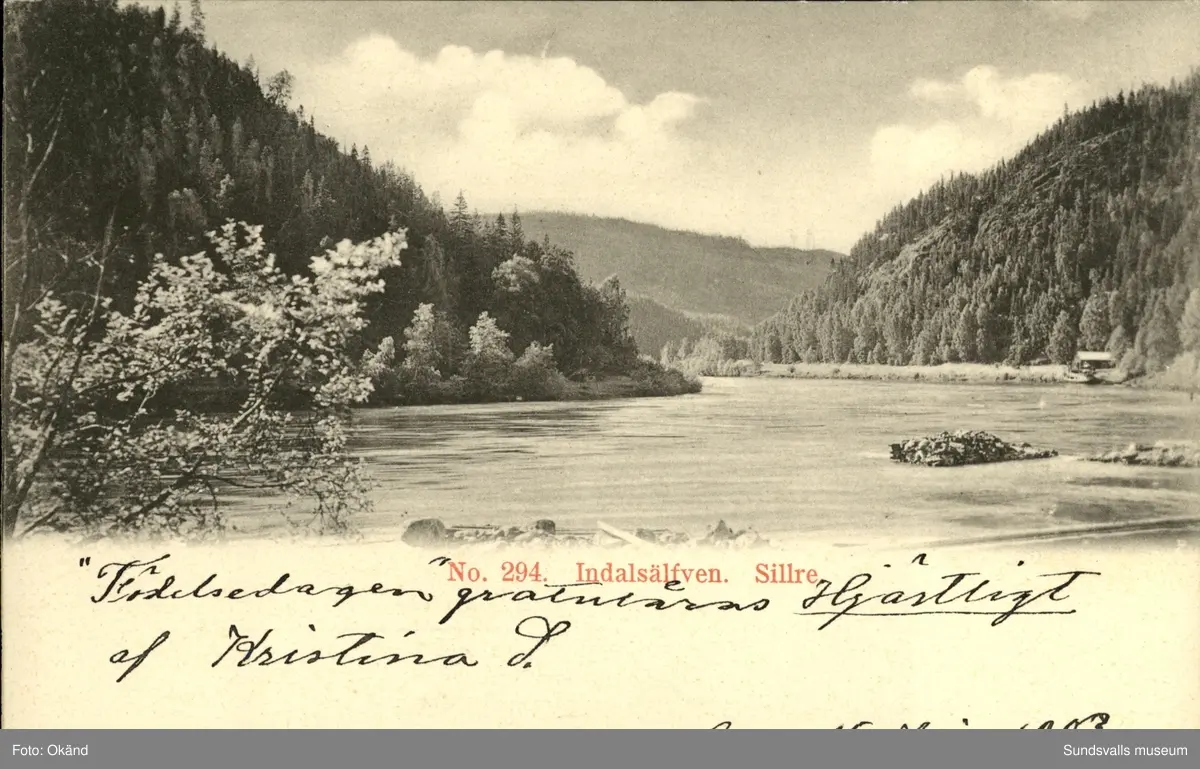 No. 294. Indalsälfven. Sillre
"Födelsedagen" gratuleras Hjärtligt
af Kristina S.
1903
Foto: Okänd
Sundsvalls museum